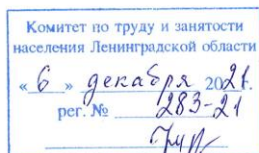 Комитет по труду и занятости
населения Ленинградской области
« 6 » декабря 2021 г.
рег. № 283-21